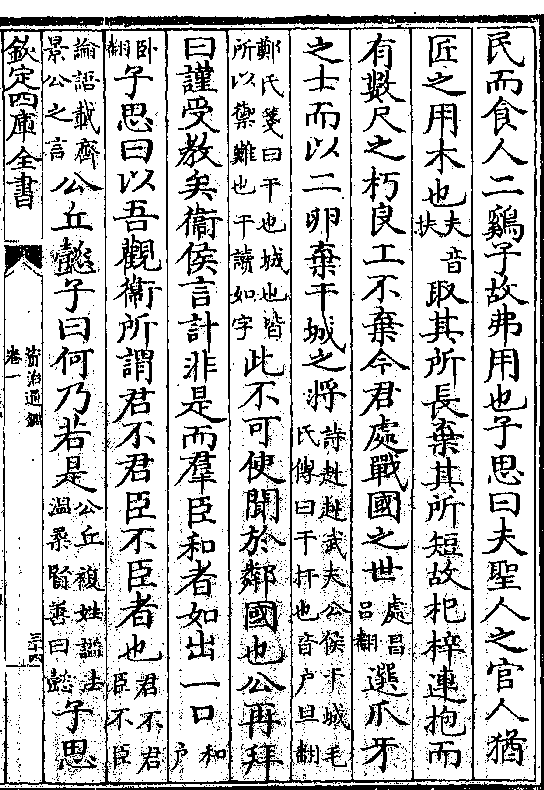 民而食人二雞子故弗用也子思曰夫聖人之官人猶
匠之用木也夫音扶取其所長棄其所短故杞梓連抱而
有數尺之朽良工不棄今君處戰國之世處昌呂翻選爪牙
之士而以二卵棄干城之將詩赳赳武夫公侯干城毛氏傳曰干扞也音户旦翻
鄭氏箋曰干也城也皆所以禦難也干讀如字此不可使聞於鄰國也公再拜
曰謹受教矣衞侯言計非是而羣臣和者如出一口和户
卧翻子思曰以吾觀衞所謂君不君臣不臣者也君不君臣不臣
論語載齊景公之言公丘懿子曰何乃若是公丘複姓諡法温柔賢善曰懿子思
欽定四庫全書
資治通鑑
卷一
三十四